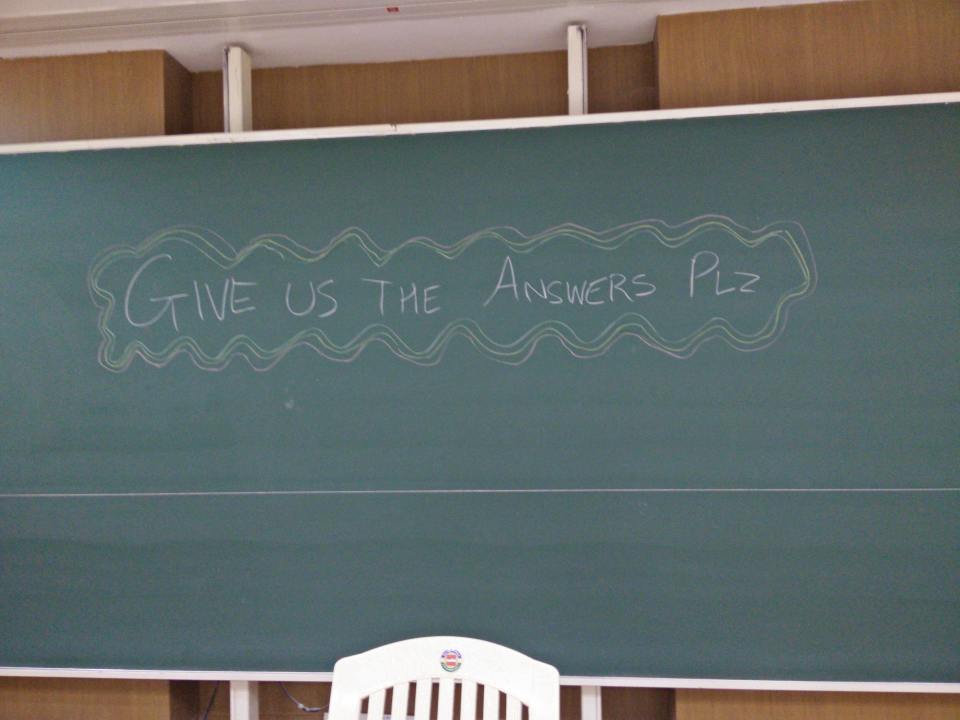 GIVE US THE ANSWERS PLZ